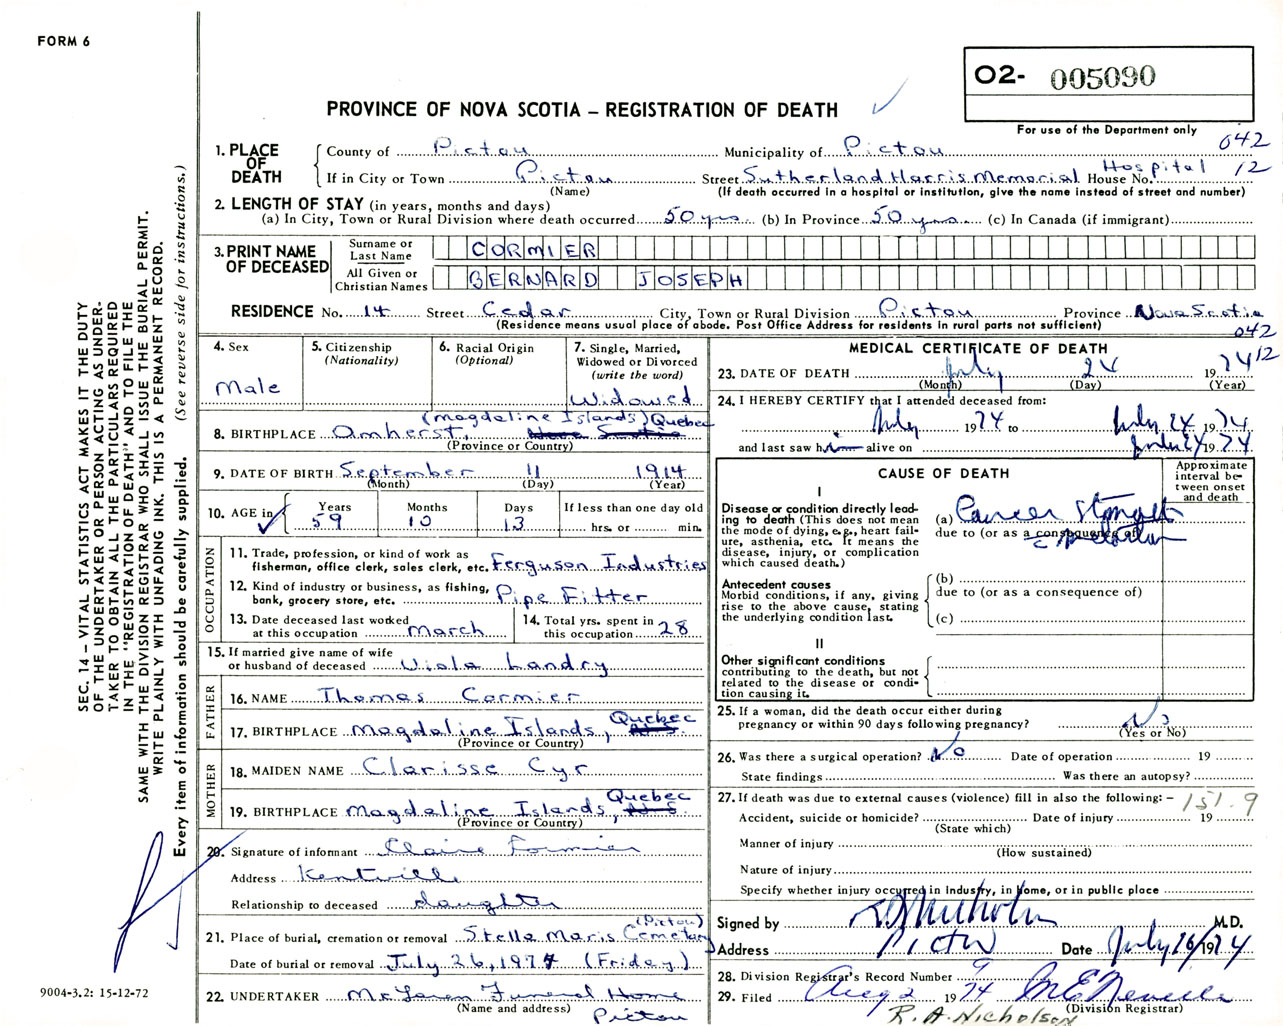 FORM 6
O2- 005090
PROVINCE OF NOVA SCOTIA – REGISTRATION OF DEATH
For use of the Department only
042
12
1. PLACE OF DEATH
County of Pictou Municipality of Pictou
If in City or Town Pictou Street Sutherland Harris Memorial Hospital House No.
(Name) (If death occurred in a hospital or institution, give the name instead of street and number)
2. LENGTH OF STAY (in years, months and days)
(a) In City, Town or Rural Division where death occurred 50 yrs (b) In Province 50 yrs. (c) In Canada (if immigrant)
3. PRINT NAME OF DECEASED
Surname or Last Name CORMIER
All Given or Christian Names BERNARD JOSEPH
RESIDENCE No. 14 Street Cedar City, Town or Rural Division Pictou Province Nova Scotia
(Residence means usual place of abode. Post Office Address for residents in rural parts not sufficient)
042
12
4. Sex
Male
5. Citizenship
(Nationality)
6. Racial Origin
(Optional)
7. Single, Married, Widowed or Divorced
(write the word)
Widowed
(Magdaline Islands) Quebec
8. BIRTHPLACE Amherst, Nova Scotia
(Province or Country)
9. DATE OF BIRTH September 11 1914
(Month) (Day) (Year)
10. AGE in
Years Months Days If less than one day old
59 10 13 hrs. or min.
OCCUPATION
11. Trade, profession, or kind of work as
fisherman, office clerk, sales clerk, etc. Ferguson Industries
12. Kind of industry or business, as fishing,
bank, grocery store, etc. Pipe Fitter
13. Date deceased last worked
at this occupation March
14. Total yrs. spent in
this occupation 28
15. If married give name of wife
or husband of deceased Viola Landry
FATHER
16. NAME Thomas Cormier
17. BIRTHPLACE Magdaline Islands, Quebec N.S.
(Province or Country)
MOTHER
18. MAIDEN NAME Clarisse Cyr
19. BIRTHPLACE Magdaline Islands, Quebec N.S
(Province or Country)
20. Signature of informant Claire
Address Kentville
Relationship to deceased daughter
21. Place of burial, cremation or removal Stella Maris Cemetary (Pictou)
Date of burial or removal July 26, 1974 (Friday)
22. UNDERTAKER McLaren Funeral Home
(Name and address) Pictou
MEDICAL CERTIFICATE OF DEATH
23. DATE OF DEATH July 24 1974
(Month) (Day) (Year)
24. I HEREBY CERTIFY that I attended deceased from:
July 1974 to July 24 1974
and last saw him alive on July 24 1974
CAUSE OF DEATH
Approximate interval between onset and death
I
Disease or condition directly lead-
ing to death (This does not mean
the mode of dying, e.g., heart fail-
ure, asthenia, etc. It means the
disease, injury, or complication
which caused death.)
(a) Cancer Stomach
due to (or as a consequence of)
Antecedent causes
Morbid conditions, if any, giving
rise to the above cause, stating
the underlying condition last.
(b)
due to (or as a consequence of)
(c)
II
Other significant conditions
contributing to the death, but not
related to the disease or condi-
tion causing it.
25. If a woman, did the death occur either during
pregnancy or within 90 days following pregnancy? No
(Yes or No)
26. Was there a surgical operation? No Date of operation 19
State findings Was there an autopsy?
27. If death was due to external causes (violence) fill in also the following: – 151.9
Accident, suicide or homicide? Date of injury 19
(State which)
Manner of injury
(How sustained)
Nature of injury
Specify whether injury occurred in Industry, in Home, or in public place
Signed by M.D.
Address Pictou Date July 26/1974
28. Division Registrar's Record Number 9
29. Filed Aug 2 1974
(Division Registrar)
R. A. Nicholson
SEC. 14 – VITAL STATISTICS ACT MAKES IT THE DUTY
OF THE UNDERTAKER OR PERSON ACTING AS UNDER-
TAKER TO OBTAIN ALL THE PARTICULARS REQUIRED
IN THE "REGISTRATION OF DEATH" AND TO FILE THE
SAME WITH THE DIVISION REGISTRAR WHO SHALL ISSUE THE BURIAL PERMIT.
WRITE PLAINLY WITH UNFADING INK. THIS IS A PERMANENT RECORD.
Every item of information should be carefully supplied. (See reverse side for instructions.)
9004-3.2: 15-12-72